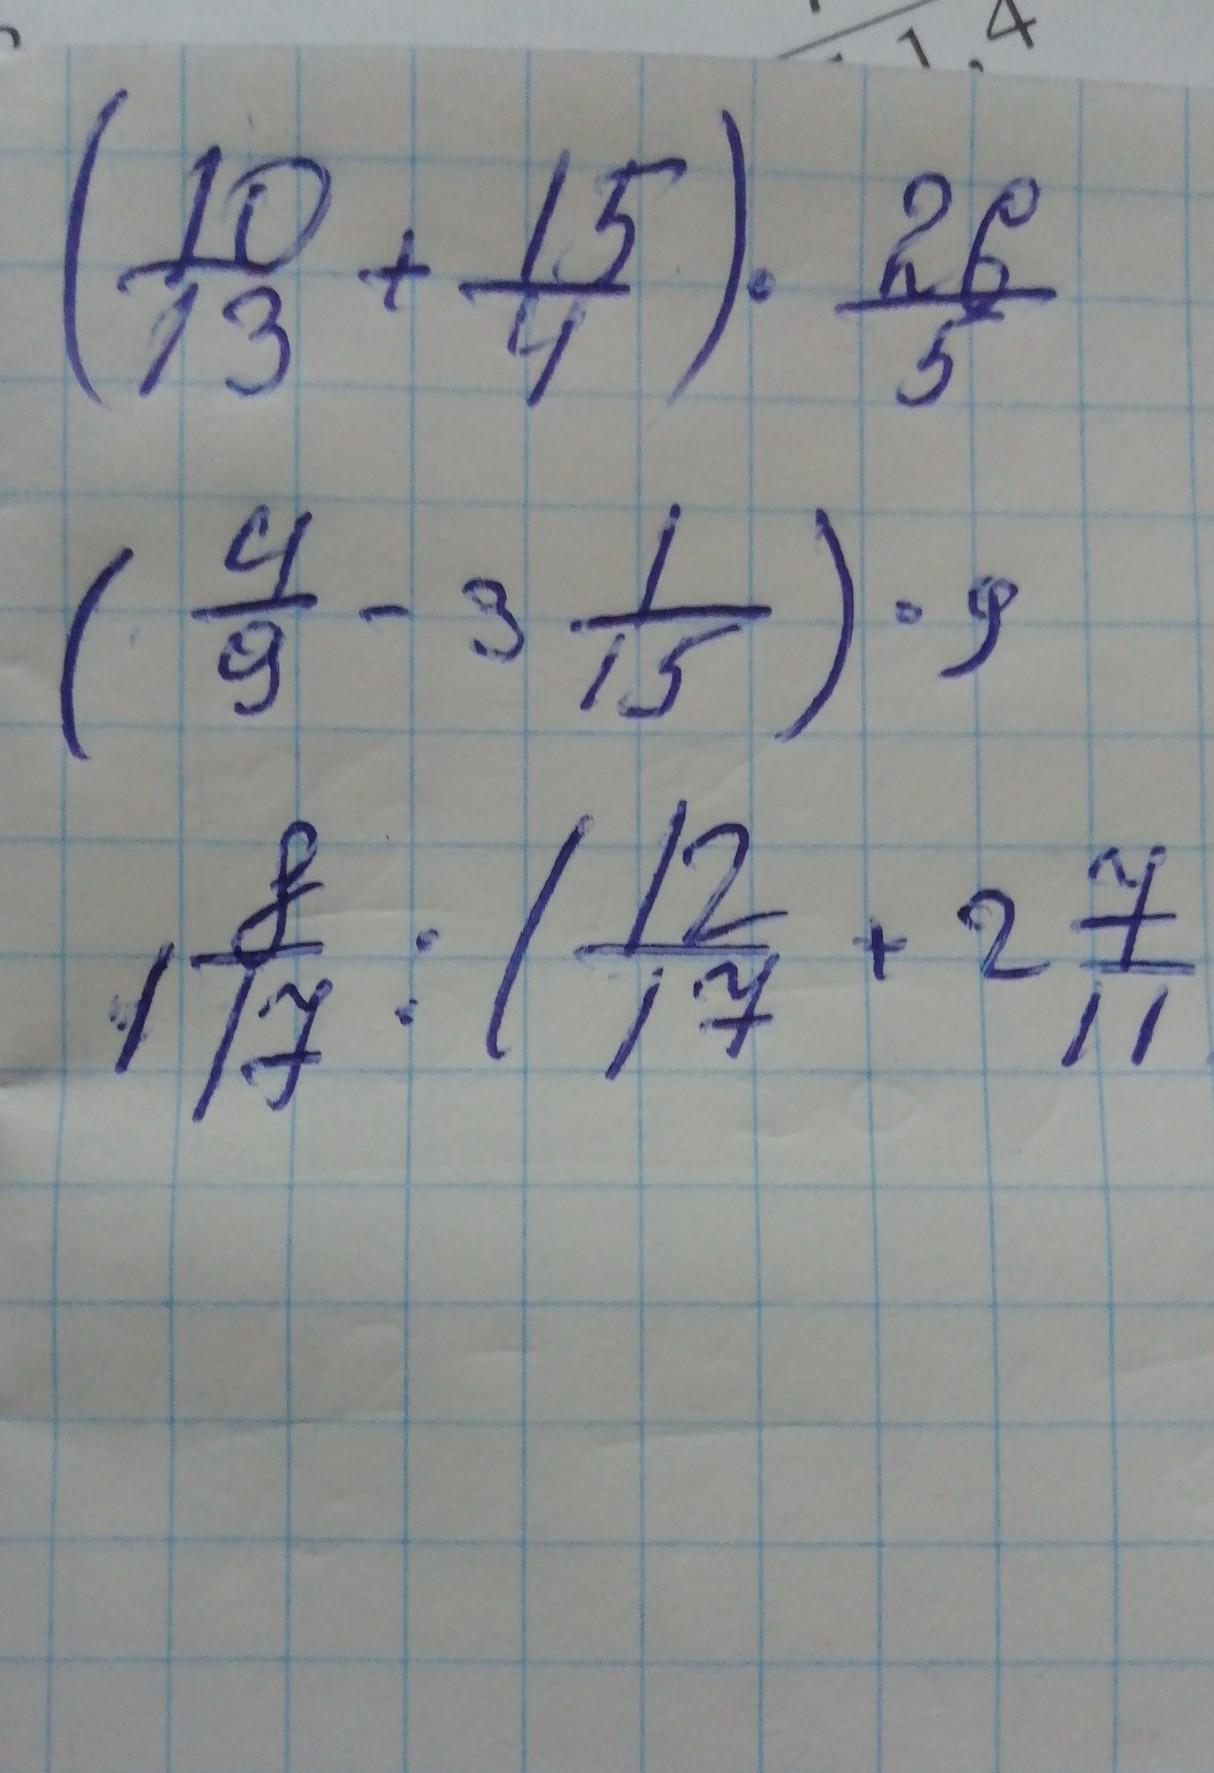 1,4
(10/13 + 15/4) · 26/5
(4/9 - 3 1/15) · 9
1 8/17 : (12/17 + 2 7/11